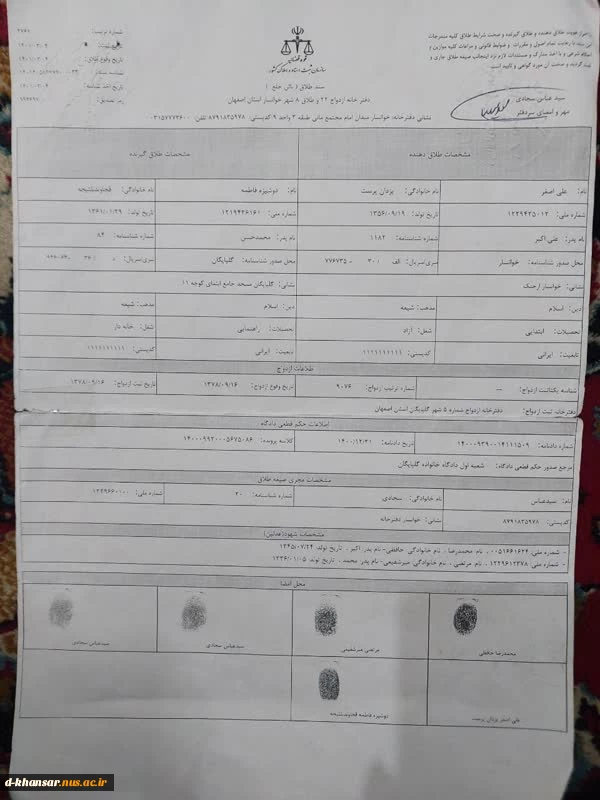 شماره ترتیب: ۳۷۶۱
تاریخ ثبت:
تاریخ وقوع طلاق:
سازمان ثبت اسناد و املاک کشور
سند طلاق ( بائن خلع )
دفترخانه ازدواج ۲۲ و طلاق ۸ شهر خوانسار استان اصفهان
سید عباس سجادی
مهر و امضای سردفتر
نشانی دفترخانه: خوانسار میدان امام مجتمع مانی طبقه ۳ واحد ۹ کدپستی: ۸۷۹۱۸۳۵۹۷۸ تلفن: ۰۳۱۵۷۷۷۳۶۰۰
مشخصات طلاق دهنده
مشخصات طلاق گیرنده
نام: علی اصغر
نام خانوادگی: یزدان پرست
نام: دوشیزه فاطمه
نام خانوادگی:
شماره ملی: ۱۲۲۹۴۳۵۰۱۲
تاریخ تولد: ۱۳۵۶/۰۹/۱۹
شماره ملی: ۱۲۱۹۴۳۶۱۶۱
تاریخ تولد: ۱۳۶۱/۰۱/۲۹
نام پدر: علی اکبر
شماره شناسنامه: ۱۱۸۲
نام پدر: محمدحسن
شماره شناسنامه: ۸۴
محل صدور شناسنامه: خوانسار
سری/سریال: الف ۳۰ / ۷۷۶۷۳۵
محل صدور شناسنامه: گلپایگان
سری/سریال:
نشانی: خوانسار ارسک
نشانی: گلپایگان مسجد جامع ابتدای کوچه ۱۱
دین: اسلام
مذهب: شیعه
دین: اسلام
مذهب: شیعه
تحصیلات: ابتدایی
شغل: آزاد
تحصیلات: راهنمایی
شغل: خانه دار
تابعیت: ایرانی
کدپستی: ۱۱۱۱۱۱۱۱۱۱
تابعیت: ایرانی
کدپستی: ۱۱۱۱۱۱۱۱۱۱
اطلاعات ازدواج
شناسه یکتاثبت ازدواج: --
شماره ترتیب ازدواج: ۹۰۷۶
تاریخ وقوع ازدواج: ۱۳۷۸/۰۹/۱۶
تاریخ ثبت ازدواج: ۱۳۷۸/۰۹/۱۶
دفترخانه ثبت ازدواج: دفترخانه ازدواج شماره ۵ شهر گلپایگان استان اصفهان
اطلاعات حکم قطعی دادگاه
شماره دادنامه: ۱۴۰۰۰۹۳۹۰۰۱۴۱۱۱۵۰۹
تاریخ دادنامه: ۱۴۰۰/۱۲/۲۱
کلاسه پرونده: ۱۴۰۰۰۹۹۲۰۰۰۵۶۷۵۰۸۶
مرجع صدور حکم قطعی دادگاه: شعبه اول دادگاه خانواده گلپایگان
مشخصات مجری صیغه طلاق
نام: سیدعباس
نام خانوادگی: سجادی
شماره شناسنامه: ۲۰
شماره ملی: ۱۲۲۹۶۶۰۱۰۰
کدپستی: ۸۷۹۱۸۳۵۹۷۸
نشانی: خوانسار دفترخانه
مشخصات شهود(عدلین)
- شماره ملی: ۰۰۵۱۶۶۱۶۲۴ ، نام: محمدرضا ، نام خانوادگی: حافظی، نام پدر: اکبر ، تاریخ تولد: ۱۳۴۵/۰۷/۲۴
- شماره ملی: ۱۲۲۹۶۱۲۳۷۸ ، نام: مرتضی ، نام خانوادگی: میرشفیعی، نام پدر: محمد ، تاریخ تولد: ۱۳۳۶/۰۱/۰۵
محل امضا
محمدرضا حافظی
مرتضی میرشفیعی
سیدعباس سجادی
سیدعباس سجادی
علی اصغر یزدان پرست
دوشیزه فاطمه
d-khansar.nus.ac.ir